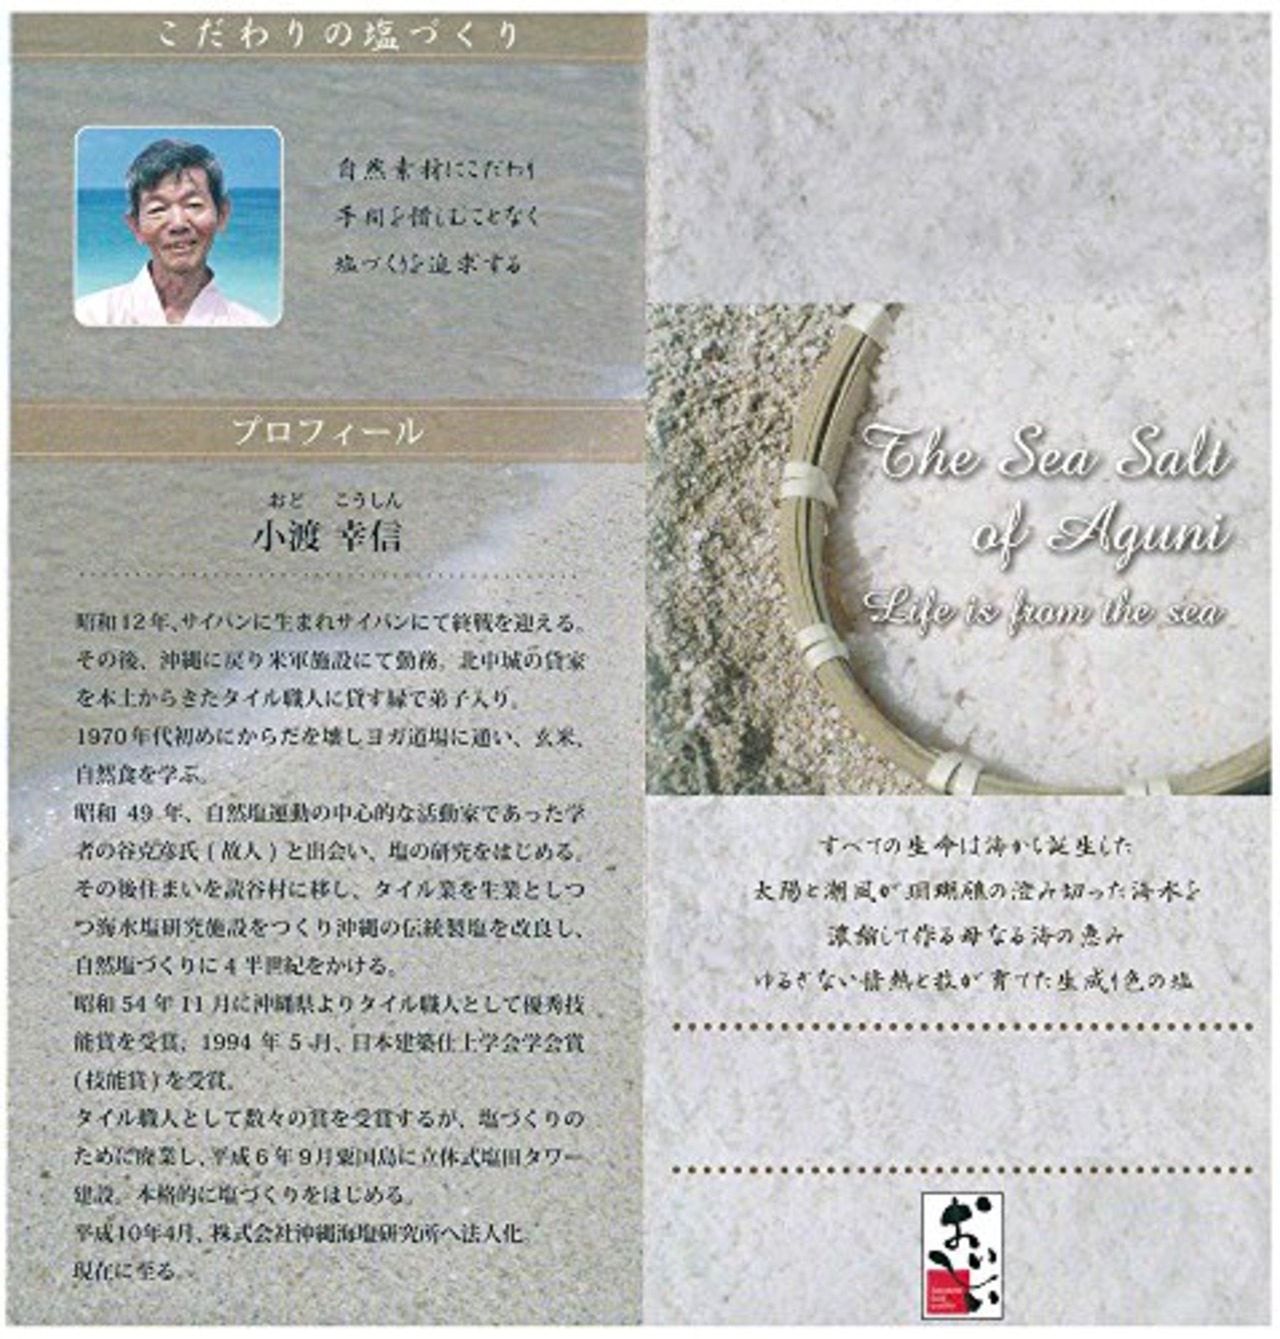 こだわりの塩づくり
自然素材にこだわり
手間を惜しむことなく
塩づくりを追求する
プロフィール
おど こうしん
小渡 幸信
昭和12年、サイパンに生まれサイパンにて終戦を迎える。
その後、沖縄に戻り米軍施設にて勤務。北中城の貸家
を本土からきたタイル職人に貸す縁で弟子入り。
1970年代初めにからだを壊しヨガ道場に通い、玄米、
自然食を学ぶ。
昭和 49 年、自然塩運動の中心的な活動家であった学
者の谷克彦氏(故人)と出会い、塩の研究をはじめる。
その後住まいを読谷村に移し、タイル業を生業としつ
つ海水塩研究施設をつくり沖縄の伝統製塩を改良し、
自然塩づくりに4半世紀をかける。
昭和54年11月に沖縄県よりタイル職人として優秀技
能賞を受賞。1994年5月、日本建築仕上学会学会賞
(技能賞)を受賞。
タイル職人として数々の賞を受賞するが、塩づくりの
ために廃業し、平成6年9月粟国島に立体式塩田タワー
建設。本格的に塩づくりをはじめる。
平成10年4月、株式会社沖縄海塩研究所へ法人化。
現在に至る。
The Sea Salt
of Aguni
Life is from the sea
すべての生命は海から誕生した
太陽と潮風が珊瑚礁の澄み切った海水を
濃縮して作る母なる海の恵み
ゆるぎない情熱と技が育てた生成り色の塩
おいしい